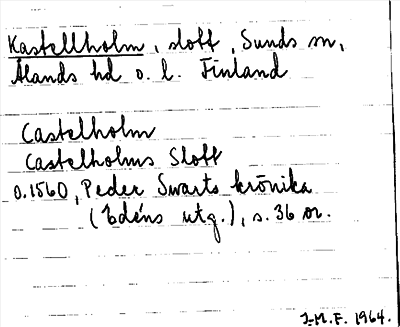 Kastellholm, slott, Sunds sn,
Ålands hd o. l. Finland
Castelholm
Castelholms Slott
o.1560, Peder Swarts krönika
(Edéns utg.), s. 36 or.
I.M.F. 1964.